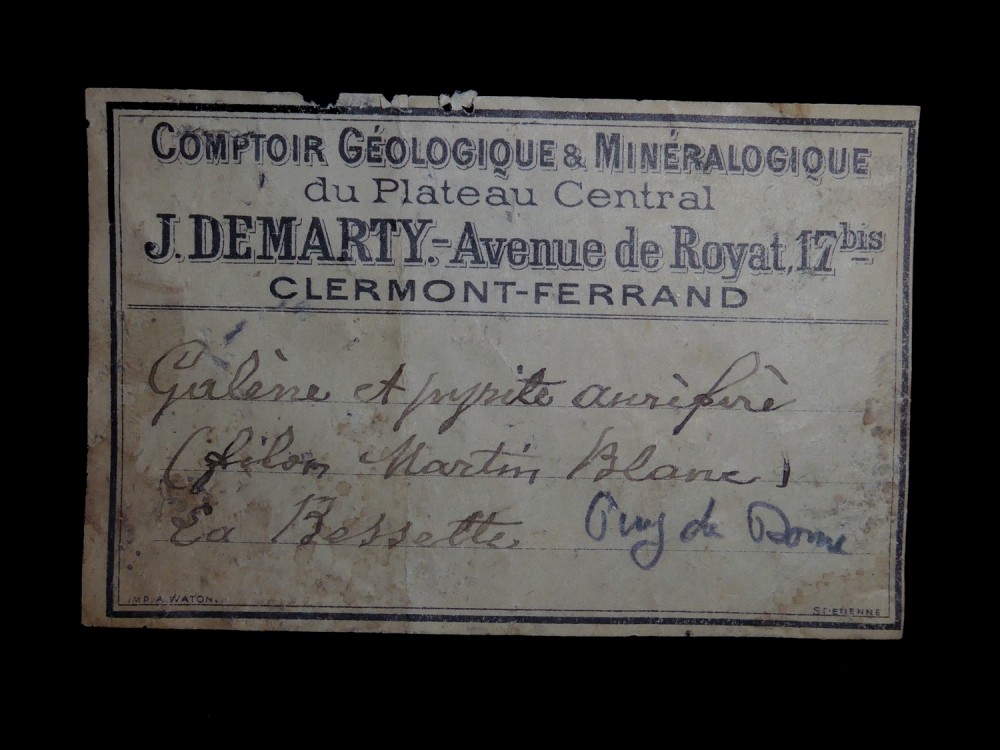 COMPTOIR GÉOLOGIQUE & MINÉRALOGIQUE
du Plateau Central
J. DEMARTY.-Avenue de Royat, 17bis
CLERMONT-FERRAND
Galène et pyrite aurifère
(filon Martin Blanc)
La Bessette Puy de Dome
IMP. A. WATON. ST-ETIENNE